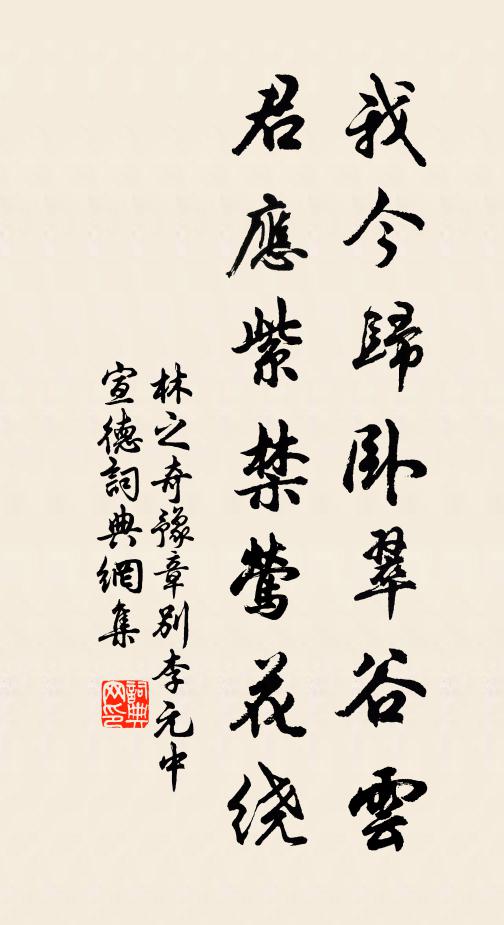 我今歸臥翠谷雲
君應紫禁鶯花绕
林之奇豫章别李元中
宣德詞典網集
詞典网印